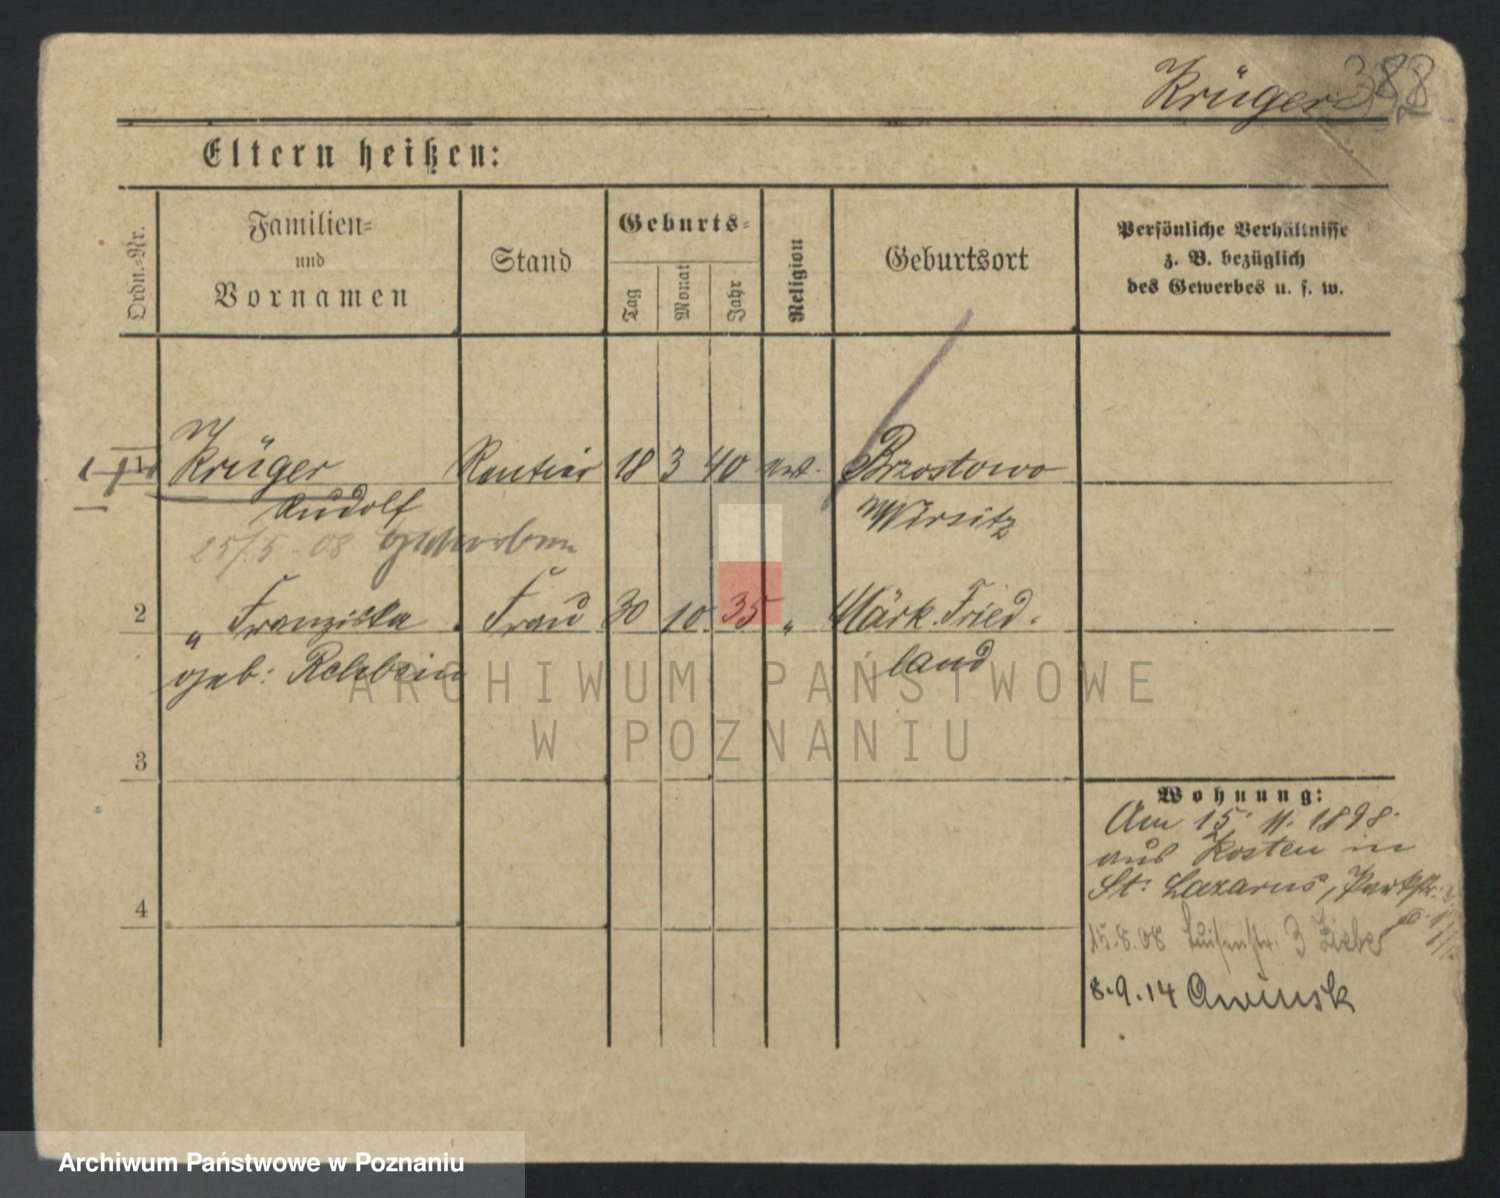 Krüger 388
Eltern heißen:
Ordn.-Nr.
Familien-
und
Vornamen
Stand
Geburts-
Tag
Monat
Jahr
Religion
Geburtsort
Persönliche Verhältnisse
z. B. bezüglich
des Gewerbes u. s. w.
1 Krüger Rentier 18 3 40 ev. Brzostowo
Rudolf Wirsitz
25/5 08 gestorben
2 „ Franziska Frau 30 10 35 „ Märk. Fried-
geb: Rehbein land
3
4
Wohnung:
Am 15. 11. 1898.
aus Kosten in
St. Lazarus, Parkstr.
15.8.08 Luisenstr. 3
8.9.14
ARCHIWUM PAŃSTWOWE
W POZNANIU
Archiwum Państwowe w Poznaniu